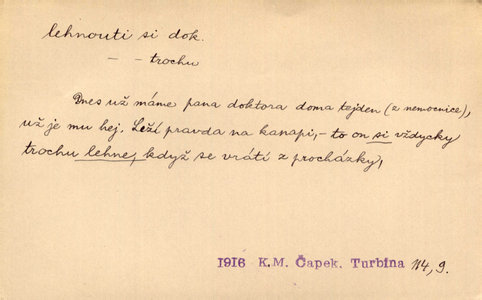 lehnouti si dok.
— — trochu
Dnes už máme pana doktora doma tejden (z nemocnice),
už je mu hej. Leží pravda na kanapi, – to on si vždycky
trochu lehne, když se vrátí z procházky,
1916 K.M. Čapek. Turbina 114, 9.